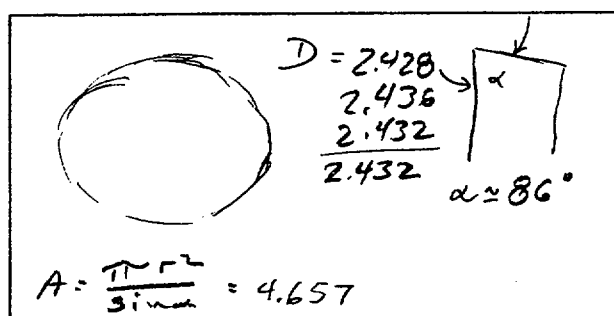 D = 2.428
2.436
2.432
2.432
α
α ≃ 86°
A = πr²/sinα = 4.657